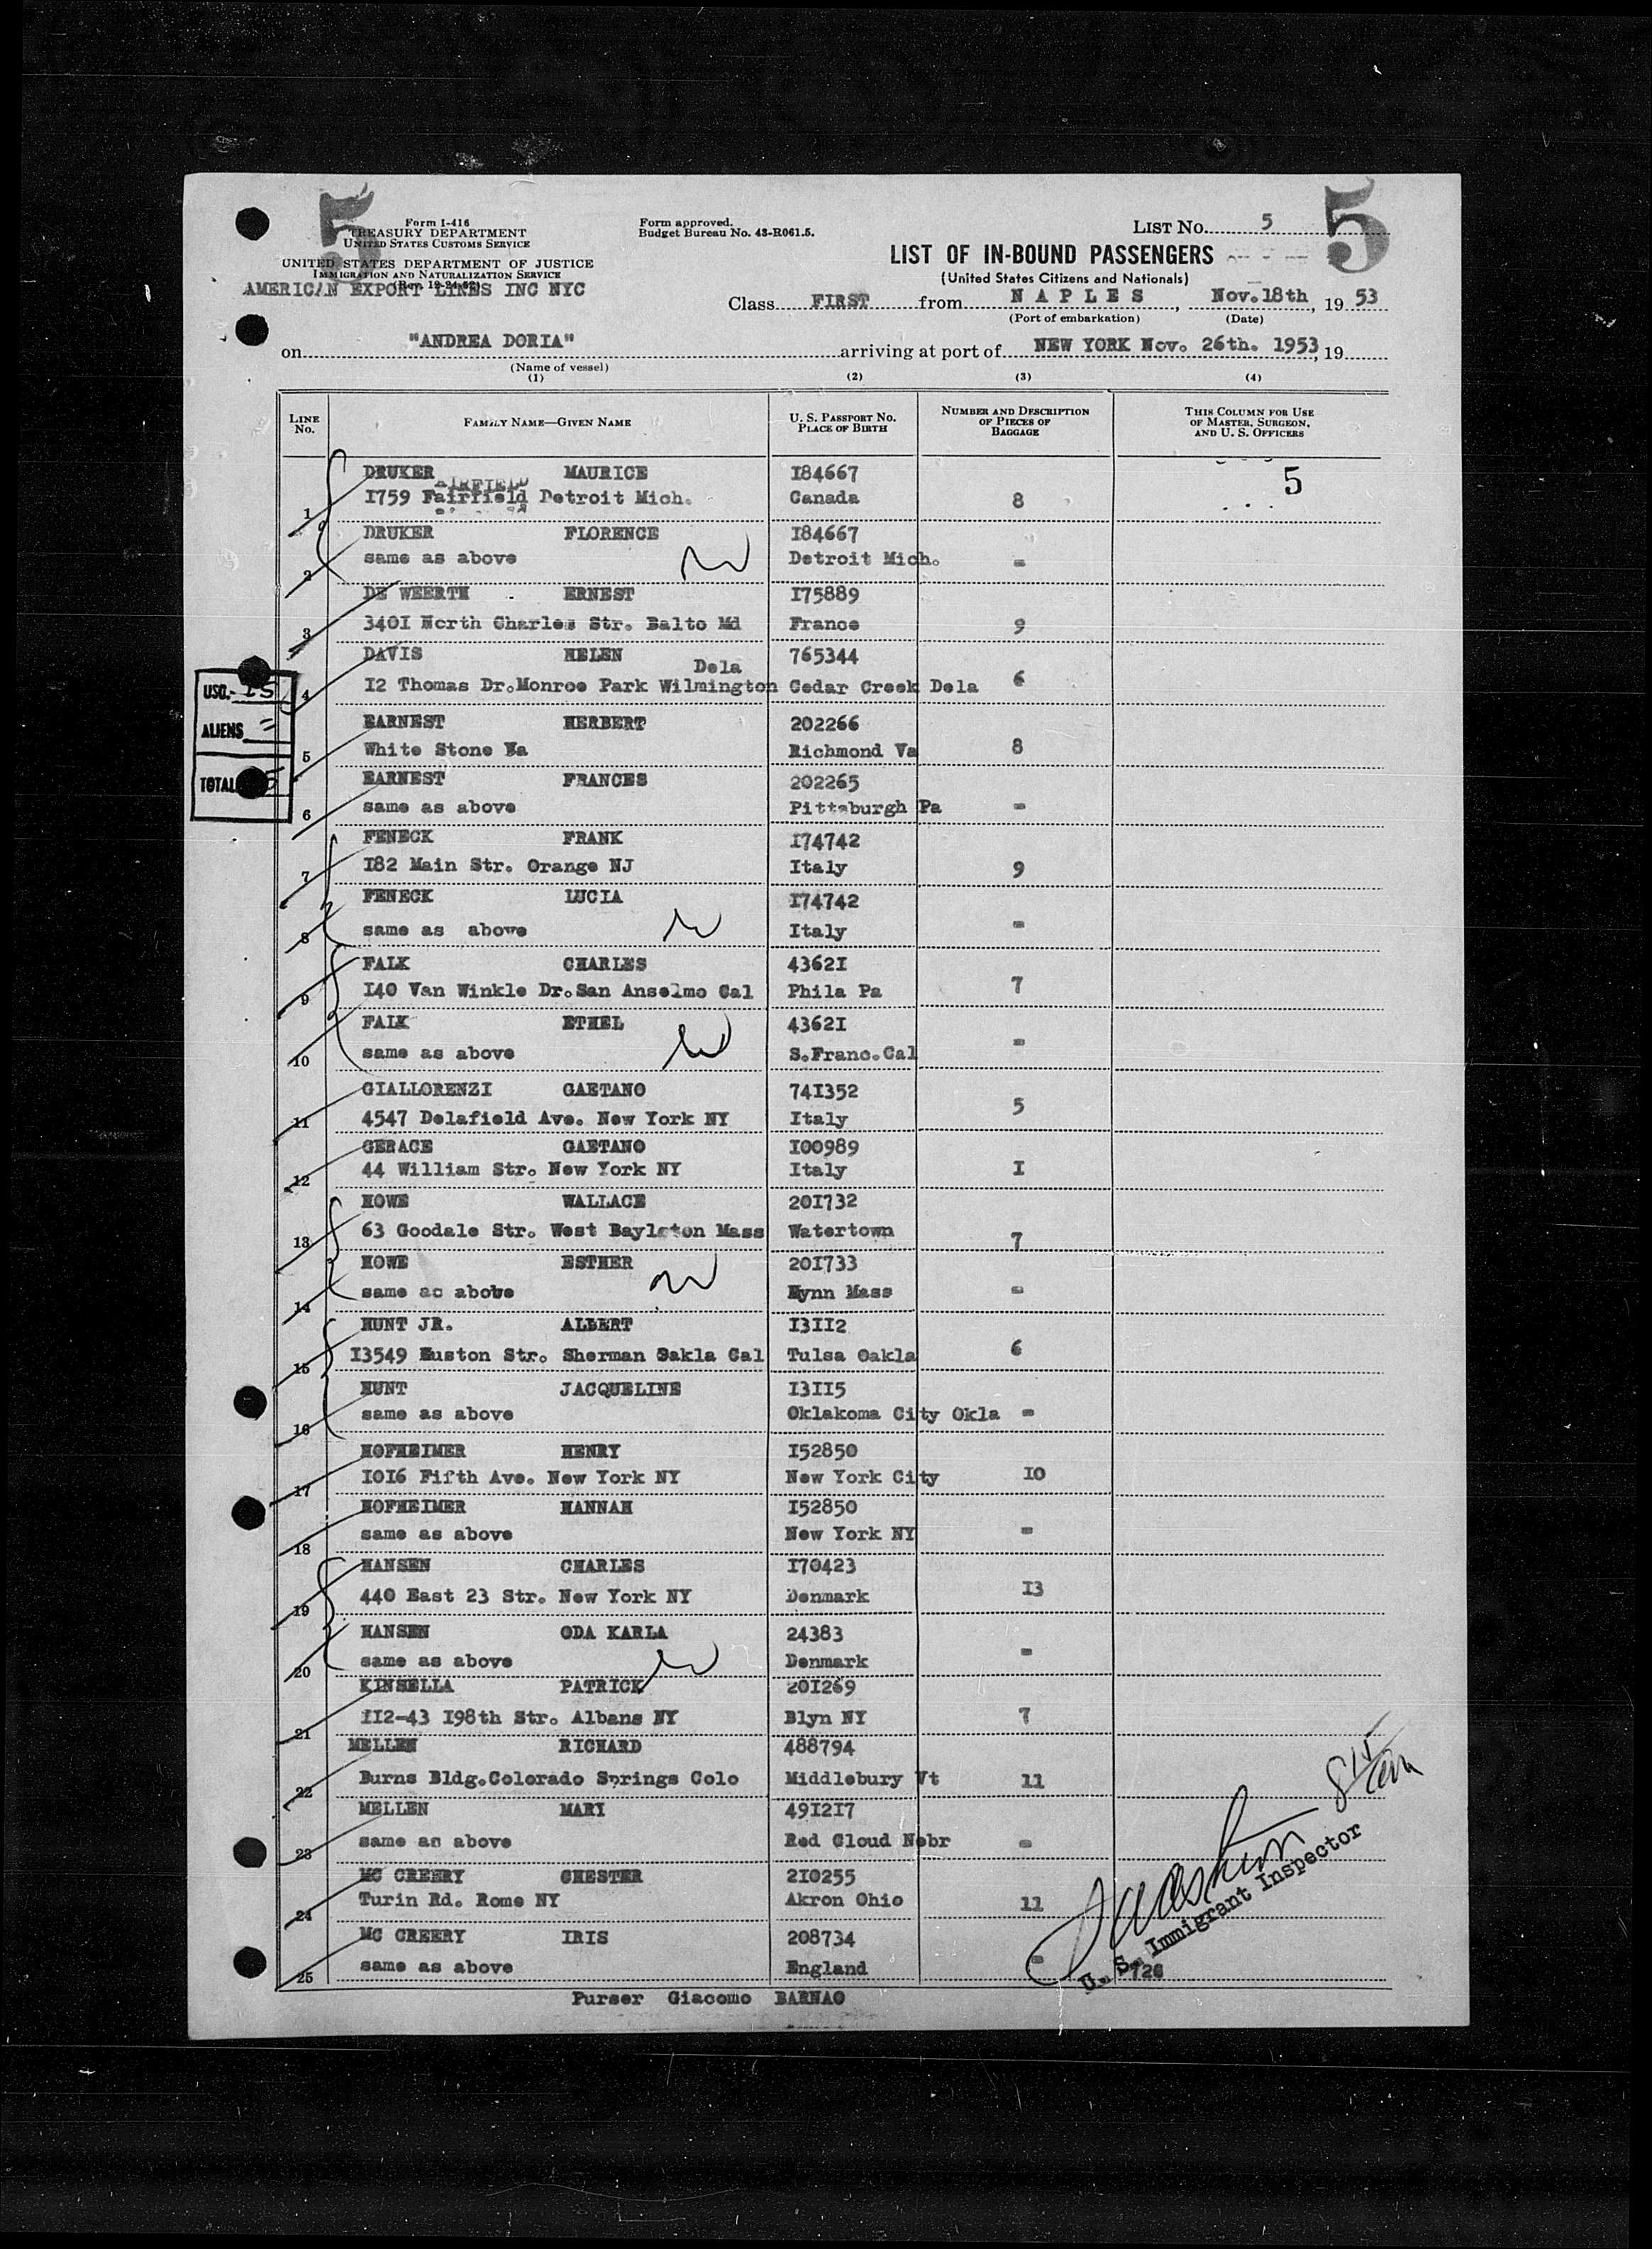 5
Form I-416
TREASURY DEPARTMENT
UNITED STATES CUSTOMS SERVICE
UNITED STATES DEPARTMENT OF JUSTICE
IMMIGRATION AND NATURALIZATION SERVICE
(Rev. 12-24-52)
AMERICAN EXPORT LINES INC NYC
Form approved.
Budget Bureau No. 43-R061.5.
LIST NO. 5
5
LIST OF IN-BOUND PASSENGERS
(United States Citizens and Nationals)
Class FIRST from N A P L E S, Nov.18th, 19 53
(Port of embarkation) (Date)
on "ANDREA DORIA" arriving at port of NEW YORK Nov. 26th. 1953, 19
(Name of vessel)
(1) (2) (3) (4)
LINE No. FAMILY NAME—GIVEN NAME U. S. PASSPORT NO. PLACE OF BIRTH NUMBER AND DESCRIPTION OF PIECES OF BAGGAGE THIS COLUMN FOR USE OF MASTER, SURGEON, AND U. S. OFFICERS
DRUKER MAURICE I84667 5
1 I759 Fairfield Detroit Mich. Canada 8
DRUKER FLORENCE I84667
2 same as above Detroit Mich. =
DE WEERTH ERNEST I75889
3 340I North Charles Str. Balto Md France 9
DAVIS HELEN Dela 765344
4 I2 Thomas Dr.Monroe Park Wilmington Cedar Creek Dela 6
EARNEST HERBERT 202266
5 White Stone Va Richmond Va 8
EARNEST FRANCES 202265
6 same as above Pittsburgh Pa =
FENECK FRANK I74742
7 I82 Main Str. Orange NJ Italy 9
FENECK LUCIA I74742
8 same as above Italy =
FALK CHARLES 4362I
9 I40 Van Winkle Dr.San Anselmo Cal Phila Pa 7
FALK ETHEL 4362I
10 same as above S.Franc.Cal =
GIALLORENZI GAETANO 74I352
11 4547 Delafield Ave. New York NY Italy 5
GERACE GAETANO I00989
12 44 William Str. New York NY Italy I
HOWE WALLACE 20I732
13 63 Goodale Str. West Baylston Mass Watertown 7
HOWE ESTHER 20I733
14 same as above Mass =
HUNT JR. ALBERT I3II2
15 I3549 Huston Str. Sherman Oakla Cal Tulsa Oakla 6
HUNT JACQUELINE I3II5
16 same as above Oklakoma City Okla =
HOFHEIMER HENRY I52850
17 I0I6 Fifth Ave. New York NY New York City I0
HOFHEIMER HANNAH I52850
18 same as above New York NY =
HANSEN CHARLES I70423
19 440 East 23 Str. New York NY Denmark I3
HANSEN ODA KARLA 24383
20 same as above Denmark =
KINSELLA PATRICK 20I269
21 II2-43 I98th Str. Albans NY Blyn NY 7
MELLEN RICHARD 488794
22 Burns Bldg.Colorado Springs Colo Middlebury Vt 11
MELLEN MARY 49I2I7
23 same as above Red Cloud Nebr =
MC CREERY CHESTER 2I0255
24 Turin Rd. Rome NY Akron Ohio 11
MC CREERY IRIS 208734
25 same as above England =
USC.
ALIENS
TOTAL
U. S. Immigrant Inspector
726
Purser Giacomo BARNAO